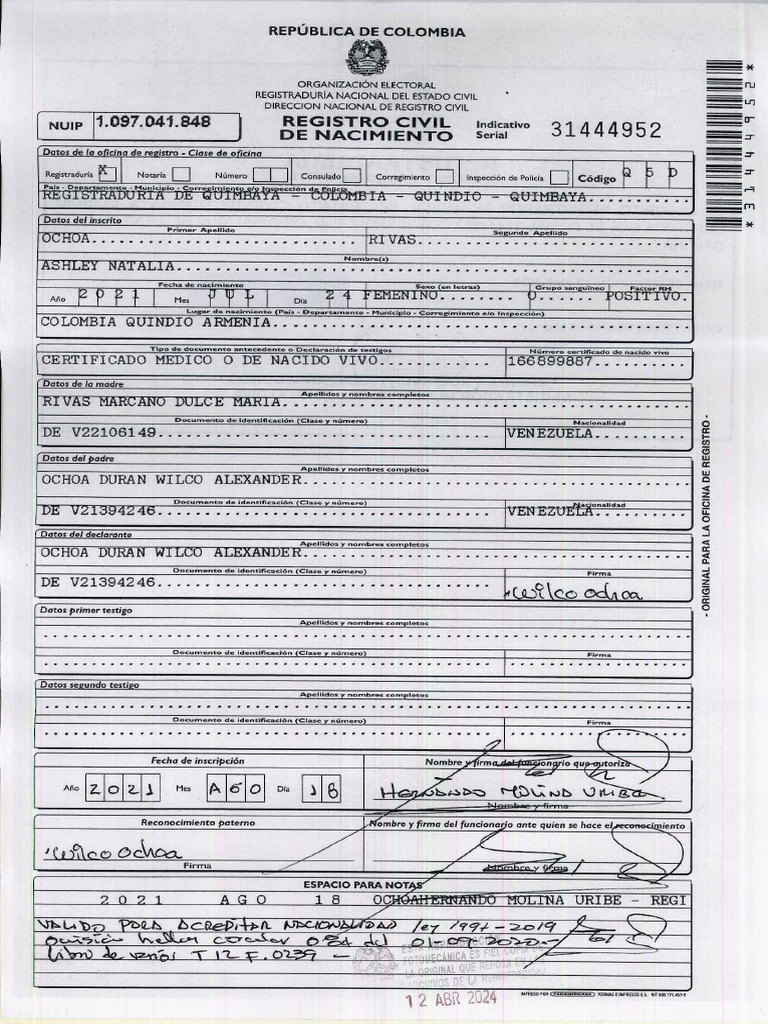 REPÚBLICA DE COLOMBIA
ORGANIZACIÓN ELECTORAL
REGISTRADURÍA NACIONAL DEL ESTADO CIVIL
DIRECCION NACIONAL DE REGISTRO CIVIL
NUIP 1.097.041.848
REGISTRO CIVIL DE NACIMIENTO
Indicativo Serial 31444952
*31444952*
Datos de la oficina de registro - Clase de oficina
Registraduría X Notaría Número Consulado Corregimiento Inspección de Policía Código Q 5 D
País - Departamento - Municipio - Corregimiento e/o Inspección de Policía
REGISTRADURIA DE QUIMBAYA - COLOMBIA - QUINDIO - QUIMBAYA
Datos del inscrito
Primer Apellido Segundo Apellido
OCHOA RIVAS
Nombre(s)
ASHLEY NATALIA
Fecha de nacimiento Sexo (en letras) Grupo sanguíneo Factor RH
Año 2021 Mes JUL Día 24 FEMENINO O POSITIVO.
Lugar de nacimiento (País - Departamento - Municipio - Corregimiento e/o Inspección)
COLOMBIA QUINDIO ARMENIA
Tipo de documento antecedente o Declaración de testigos Número certificado de nacido vivo
CERTIFICADO MEDICO O DE NACIDO VIVO 166899887
Datos de la madre
Apellidos y nombres completos
RIVAS MARCANO DULCE MARIA
Documento de identificación (Clase y número) Nacionalidad
DE V22106149 VENEZUELA
Datos del padre
Apellidos y nombres completos
OCHOA DURAN WILCO ALEXANDER
Documento de identificación (Clase y número) Nacionalidad
DE V21394246 VENEZUELA
Datos del declarante
Apellidos y nombres completos
OCHOA DURAN WILCO ALEXANDER
Documento de identificación (Clase y número) Firma
DE V21394246 Wilco Ochoa
Datos primer testigo
Apellidos y nombres completos
Documento de identificación (Clase y número) Firma
Datos segundo testigo
Apellidos y nombres completos
Documento de identificación (Clase y número) Firma
Fecha de inscripción Nombre y firma del funcionario que autoriza
Año 2021 Mes AGO Día 18 HERNANDO MOLINA URIBE
Nombre y firma
Reconocimiento paterno Nombre y firma del funcionario ante quien se hace el reconocimiento
Wilco Ochoa
Firma Nombre y firma
ESPACIO PARA NOTAS
2021 AGO 18 OCHOAHERNANDO MOLINA URIBE - REGI
VALIDO PARA ACREDITAR NACIONALIDAD ley 1997-2019
circular 084 del 01-09-2020.-
Libro de varios T 12 F. 0239 -
FOTOMECÁNICA ES FIEL
LA ORIGINAL QUE REPOSA
ARCHIVOS DE LA
12 ABR 2024
- ORIGINAL PARA LA OFICINA DE REGISTRO -